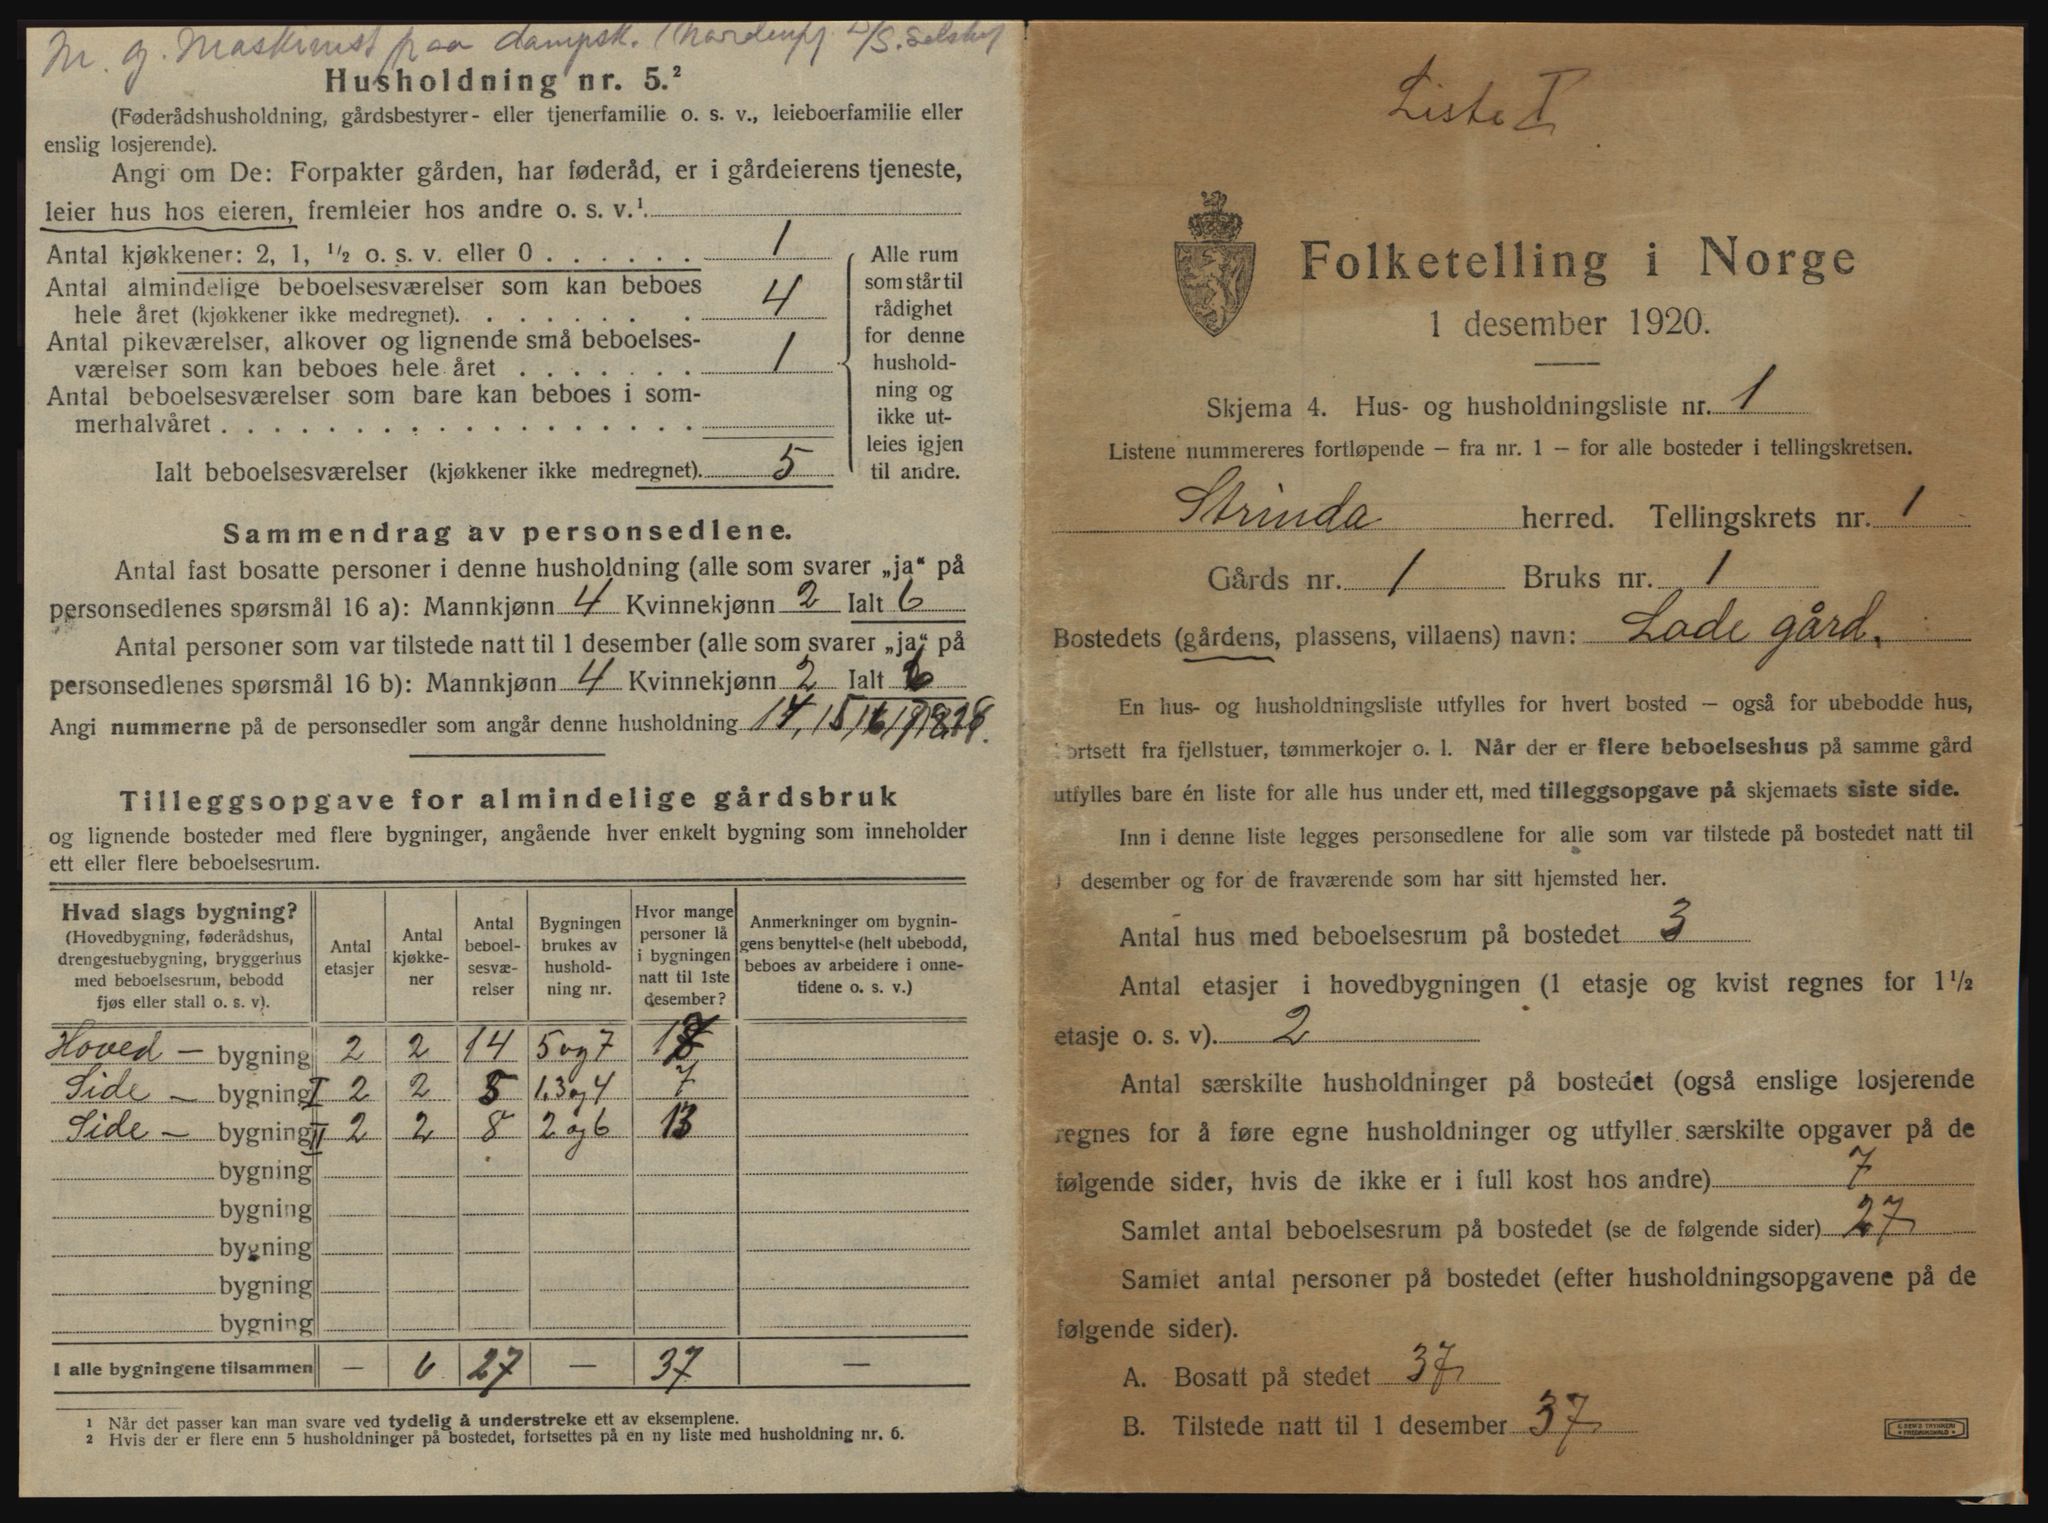 M. g. Maskinist paa dampsk. D/S. Selskap
Husholdning nr. 5.²
(Føderådshusholdning, gårdsbestyrer- eller tjenerfamilie o. s. v., leieboerfamilie eller
enslig losjerende).
Angi om De: Forpakter gården, har føderåd, er i gårdeierens tjeneste,
leier hus hos eieren, fremleier hos andre o. s. v.¹
Antal kjøkkener: 2, 1, ½ o. s. v. eller 0 . . . . . . 1
Antal almindelige beboelsesværelser som kan beboes
hele året (kjøkkener ikke medregnet). . . . . . . . 4
Antal pikeværelser, alkover og lignende små beboelses-
værelser som kan beboes hele året . . . . . . . 1
Antal beboelsesværelser som bare kan beboes i som-
merhalvåret . . . . . . . . . . . . . . . . . .
Ialt beboelsesværelser (kjøkkener ikke medregnet). 5
Alle rum
som står til
rådighet
for denne
hushold-
ning og
ikke ut-
leies igjen
til andre.
Sammendrag av personsedlene.
Antal fast bosatte personer i denne husholdning (alle som svarer „ja“ på
personsedlenes spørsmål 16 a): Mannkjønn 4 Kvinnekjønn 2 Ialt 6
Antal personer som var tilstede natt til 1 desember (alle som svarer „ja“ på
personsedlenes spørsmål 16 b): Mannkjønn 4 Kvinnekjønn 2 Ialt 6
Angi nummerne på de personsedler som angår denne husholdning 14, 15, 16, 17, 18, 28.
Tilleggsopgave for almindelige gårdsbruk
og lignende bosteder med flere bygninger, angående hver enkelt bygning som inneholder
ett eller flere beboelsesrum.
Hvad slags bygning?
(Hovedbygning, føderådshus,
drengestuebygning, bryggerhus
med beboelsesrum, bebodd
fjøs eller stall o. s. v).
Antal
etasjer
Antal
kjøkke-
ner
Antal
beboel-
sesvæ-
relser
Bygningen
brukes av
hushold-
ning nr.
Hvor mange
personer lå
i bygningen
natt til 1ste
desember?
Anmerkninger om bygnin-
gens benyttelse (helt ubebodd,
beboes av arbeidere i onne-
tidene o. s. v.)
Hoved — bygning 2 2 14 5 og 7 17
Side — bygning I 2 2 5 1. 3 og 4 7
Side — bygning II 2 2 8 2 og 6 13
bygning
bygning
bygning
bygning
bygning
I alle bygningene tilsammen — 6 27 — 37 —
¹ Når det passer kan man svare ved tydelig å understreke ett av eksemplene.
² Hvis der er flere enn 5 husholdninger på bostedet, fortsettes på en ny liste med husholdning nr. 6.
Liste I
Folketelling i Norge
1 desember 1920.
Skjema 4. Hus- og husholdningsliste nr. 1
Listene nummereres fortløpende — fra nr. 1 — for alle bosteder i tellingskretsen.
Strinda herred. Tellingskrets nr. 1
Gårds nr. 1 Bruks nr. 1
Bostedets (gårdens, plassens, villaens) navn: Lade gård.
En hus- og husholdningsliste utfylles for hvert bosted — også for ubebodde hus,
fortsett fra fjellstuer, tømmerkojer o. l. Når der er flere beboelseshus på samme gård
utfylles bare én liste for alle hus under ett, med tilleggsopgave på skjemaets siste side.
Inn i denne liste legges personsedlene for alle som var tilstede på bostedet natt til
desember og for de fraværende som har sitt hjemsted her.
Antal hus med beboelsesrum på bostedet 3
Antal etasjer i hovedbygningen (1 etasje og kvist regnes for 1½
etasje o. s. v). 2
Antal særskilte husholdninger på bostedet (også enslige losjerende
regnes for å føre egne husholdninger og utfyller særskilte opgaver på de
følgende sider, hvis de ikke er i full kost hos andre) 7
Samlet antal beboelsesrum på bostedet (se de følgende sider) 27
Samlet antal personer på bostedet (efter husholdningsopgavene på de
følgende sider).
A. Bosatt på stedet 37
B. Tilstede natt til 1 desember 37